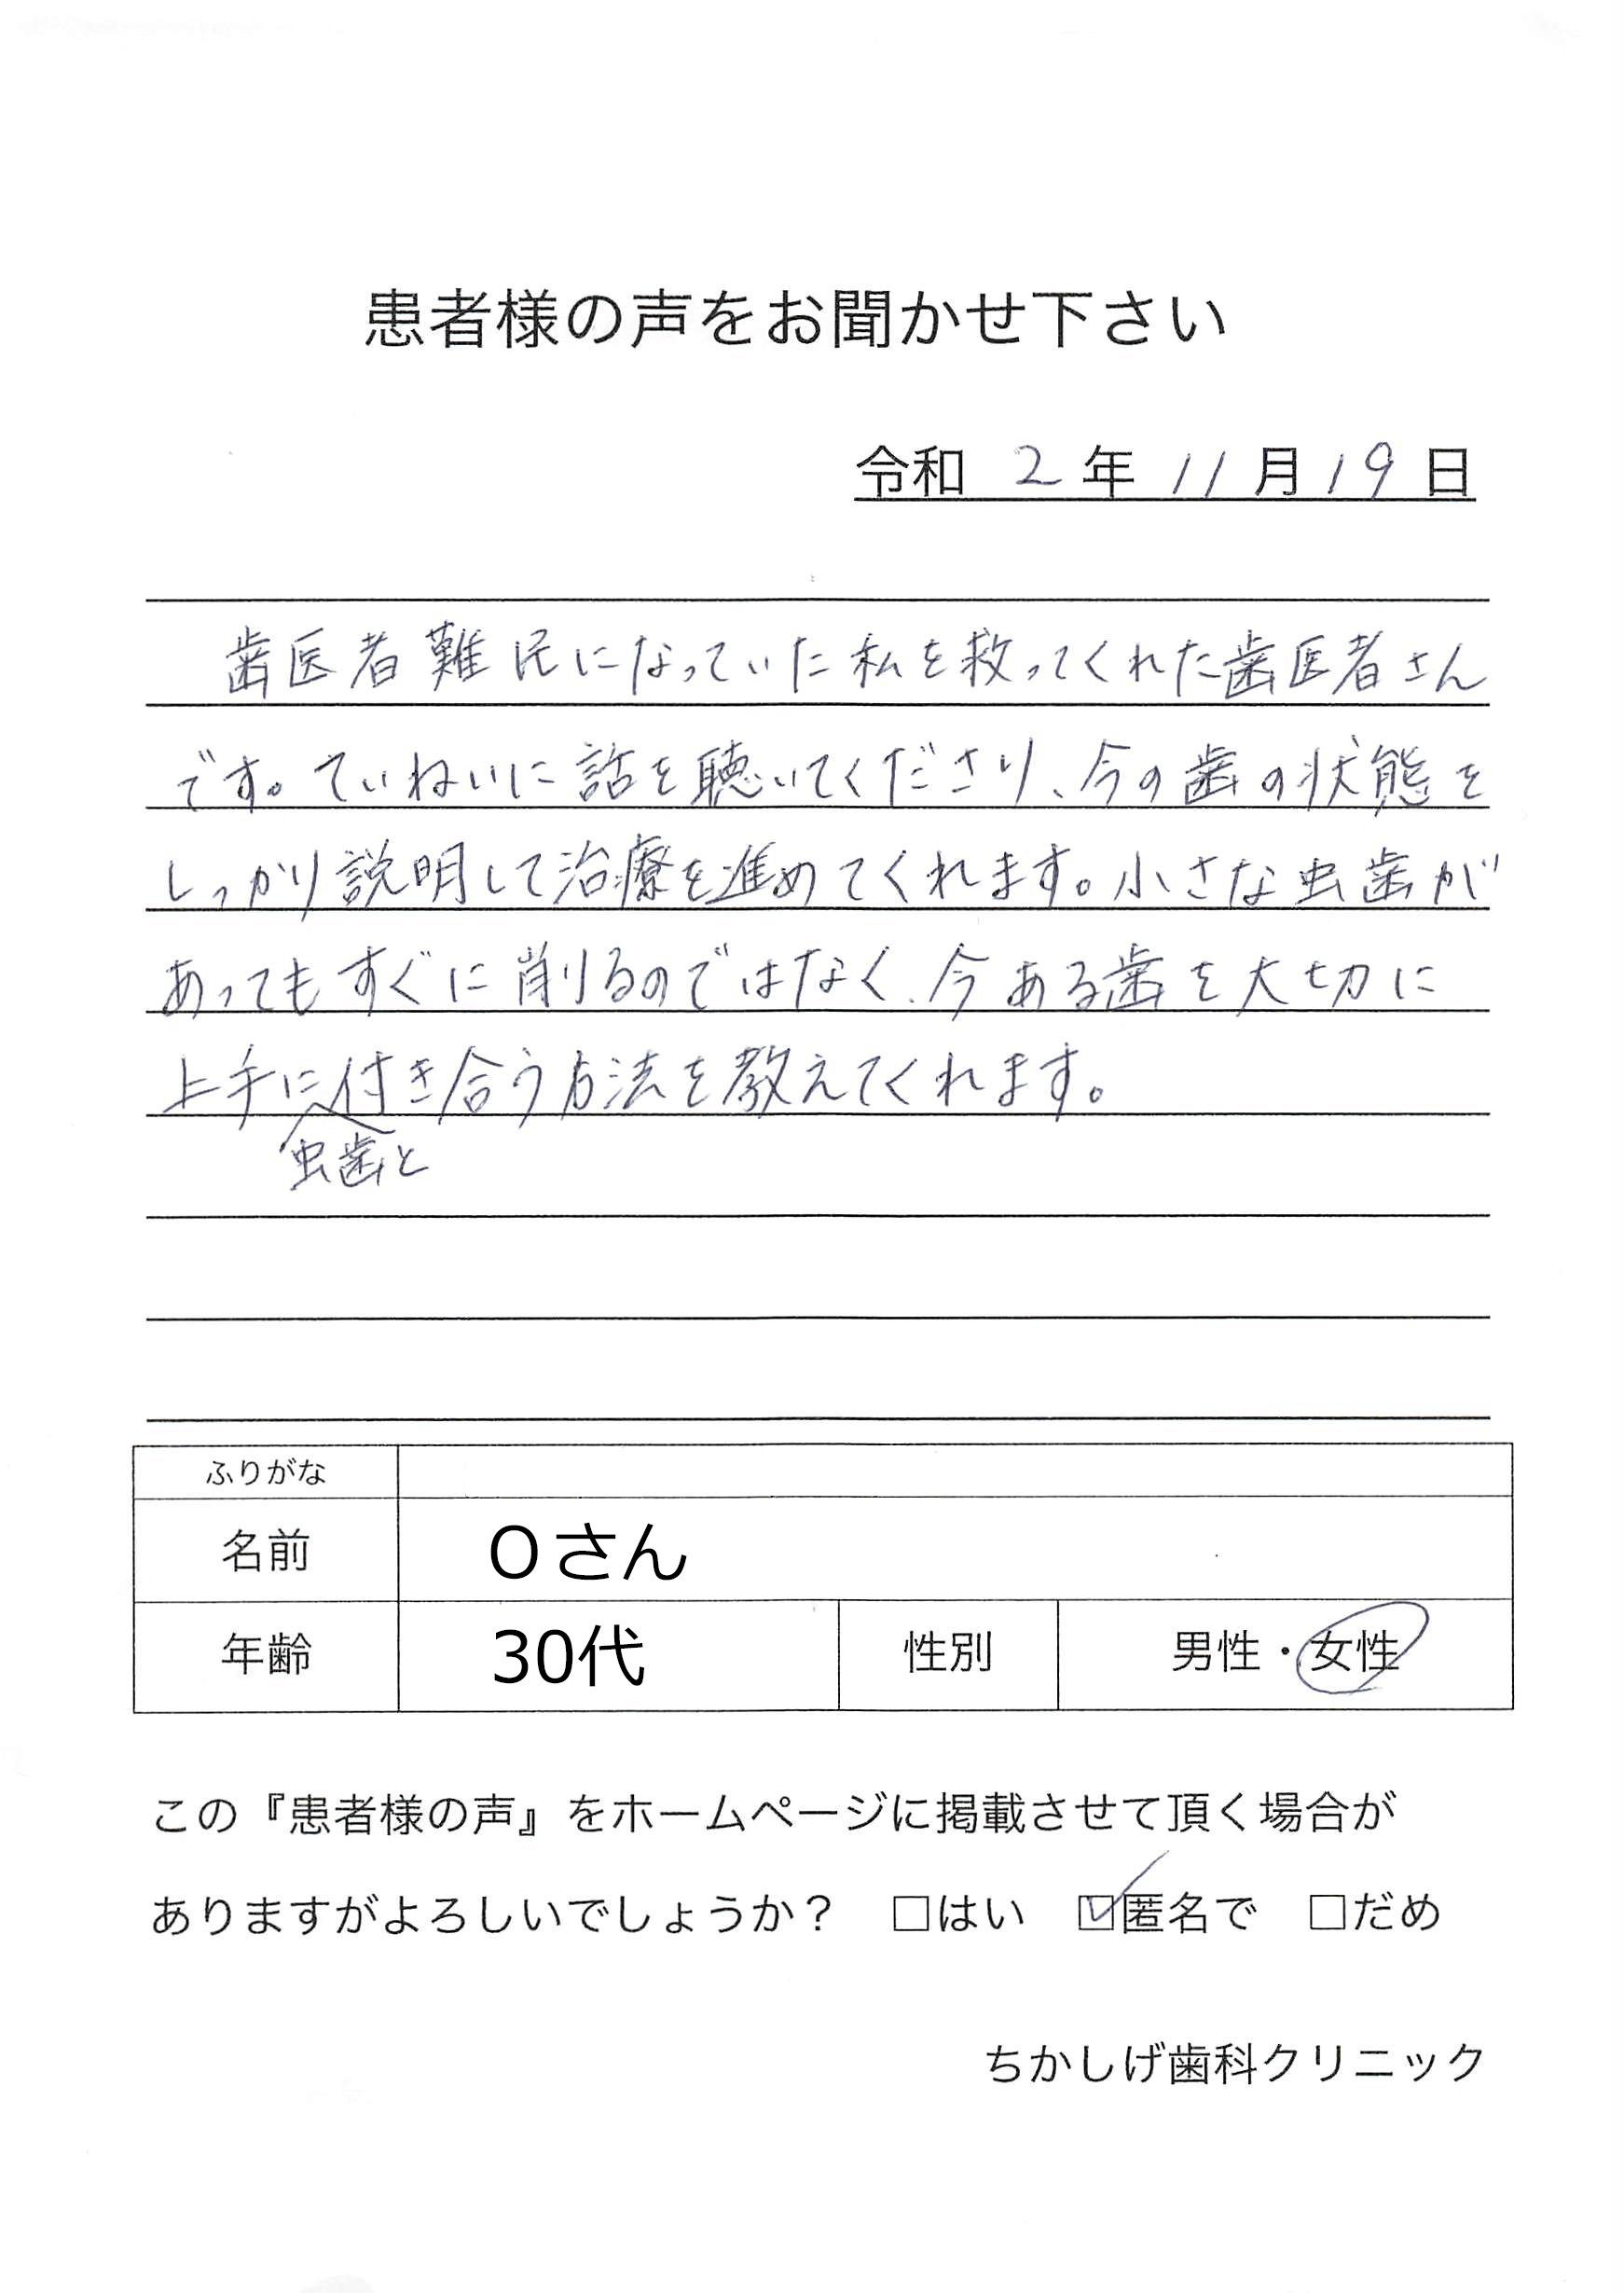 患者様の声をお聞かせ下さい
令和 2 年 11 月 19 日
歯医者難民になっていた私を救ってくれた歯医者さん
です。ていねいに話を聴いてくださり、今の歯の状態を
しっかり説明して治療を進めてくれます。小さな虫歯が
あってもすぐに削るのではなく、今ある歯を大切に
上手に付き合う方法を教えてくれます。
虫歯と
ふりがな
名前 Oさん
年齢 30代 性別 男性・女性
この『患者様の声』をホームページに掲載させて頂く場合が
ありますがよろしいでしょうか？ □はい ☑匿名で □だめ
ちかしげ歯科クリニック